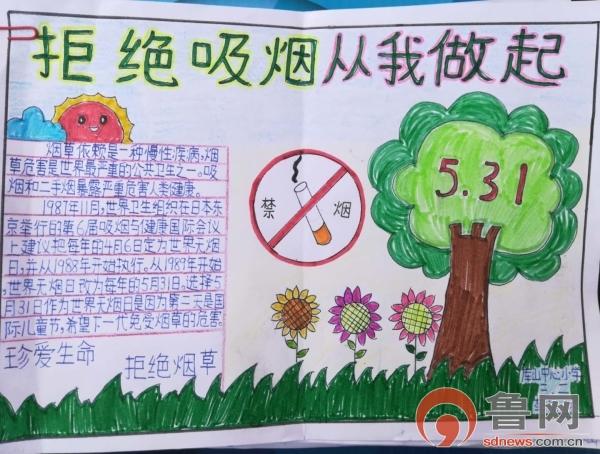 拒绝吸烟从我做起
烟草依赖是一种慢性疾病,烟
草危害是世界最严重的公共卫生之一。吸
烟和二手烟暴露严重危害人类健康。
1987年11月,世界卫生组织在日本东
京举行的第6届吸烟与健康国际会议
上建议把每年的4月6日定为世界无烟
日,并从1988年开始执行。从1989年开始
,世界无烟日改为每年的5月31日,选择5
月31日作为世界无烟日是因为第二天是国
际儿童节,希望下一代免受烟草的危害。
珍爱生命 拒绝烟草
禁 烟
5.31
库山中心小学
三、二
鲁网
sdnews.com.cn